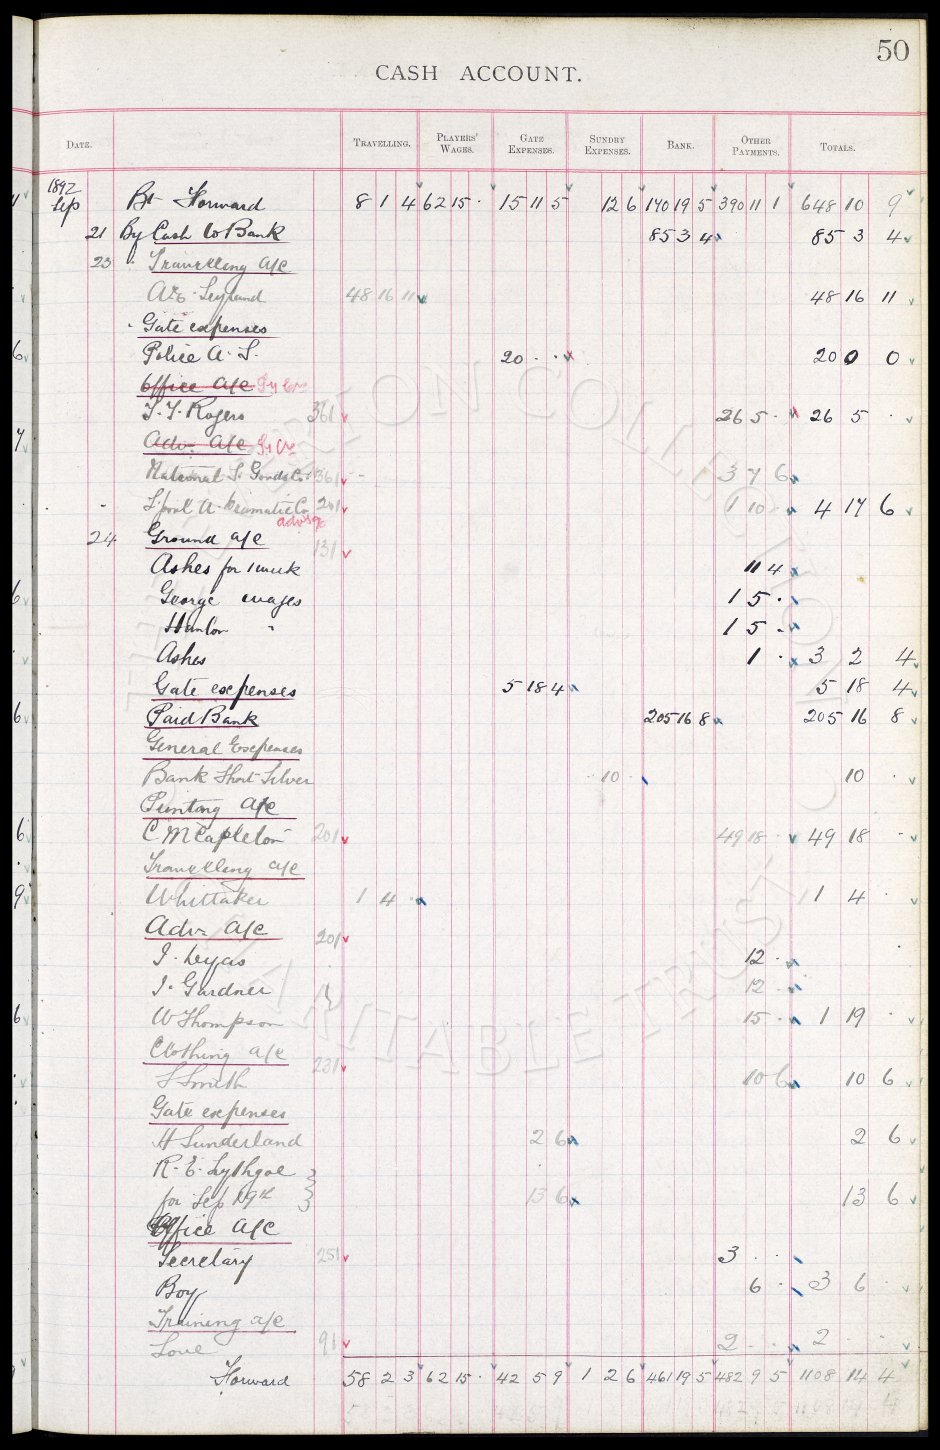 50
CASH ACCOUNT.
DATE. TRAVELLING. PLAYERS' WAGES. GATE EXPENSES. SUNDRY EXPENSES. BANK. OTHER PAYMENTS. TOTALS.
1897
Sep Bt Forward 8 1 4 62 15 · 15 11 5 12 6 170 19 5 390 11 1 648 10 9
21 By Cash to Bank 85 3 4 85 3 4
23 " Travelling a/c
Leyland 48 16 11 48 16 11
" Gate expenses
Police A. L. 20 · · 20 0 0
Office a/c
T. Y. Rogers 361 26 5 · 26 5 ·
Adv. a/c
National S. Goods Co. 361 3 7 6
L'pool A. Co 201 1 10 · 4 17 6
24 Ground a/c 131
Ashes for 1 week 11 4
George wages 1 5 ·
Hanlon " 1 5 ·
Ashes 1 · 3 2 4
Gate expenses 5 18 4 5 18 4
Paid Bank 205 16 8 205 16 8
General Expenses
Bank Short Silver 10 · 10 ·
Printing a/c
C. McCapleton 201 49 18 · 49 18 ·
Travelling a/c
Whittaker 1 4 · 1 4 ·
Adv. a/c 201
J. Lyas 12 ·
J. Gardner 12 ·
W Thompson 15 · 1 19 ·
Clothing a/c 231
S Smith 10 6 10 6
Gate expenses
H Sunderland 2 6 2 6
R. E. Lythgoe
for Sep 19th 13 6 13 6
Office a/c
Secretary 251 3 · ·
Boy 6 · 3 6 ·
Training a/c
Love 91 2 · · 2 · ·
Forward 58 2 3 62 15 · 42 5 9 1 2 6 461 19 5 482 9 5 1108 14 4
EVERTON COLLECTION
CHARITABLE TRUST